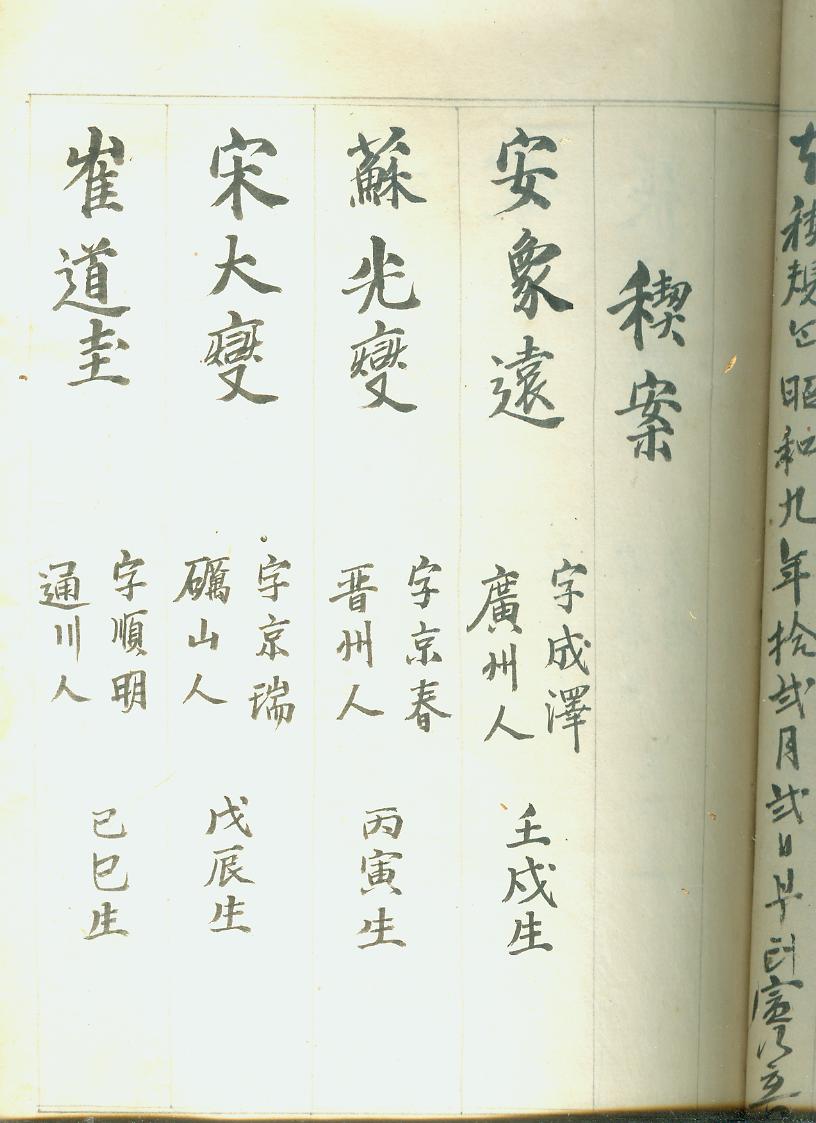 右稧規은昭和九年拾弍月弍日부터
稧案
安象遠 字成澤 廣州人 壬戌生
蘇光燮 字京春 晋州人 丙寅生
宋大燮 字京瑞 礪山人 戊辰生
崔道圭 字順明 通川人 己巳生